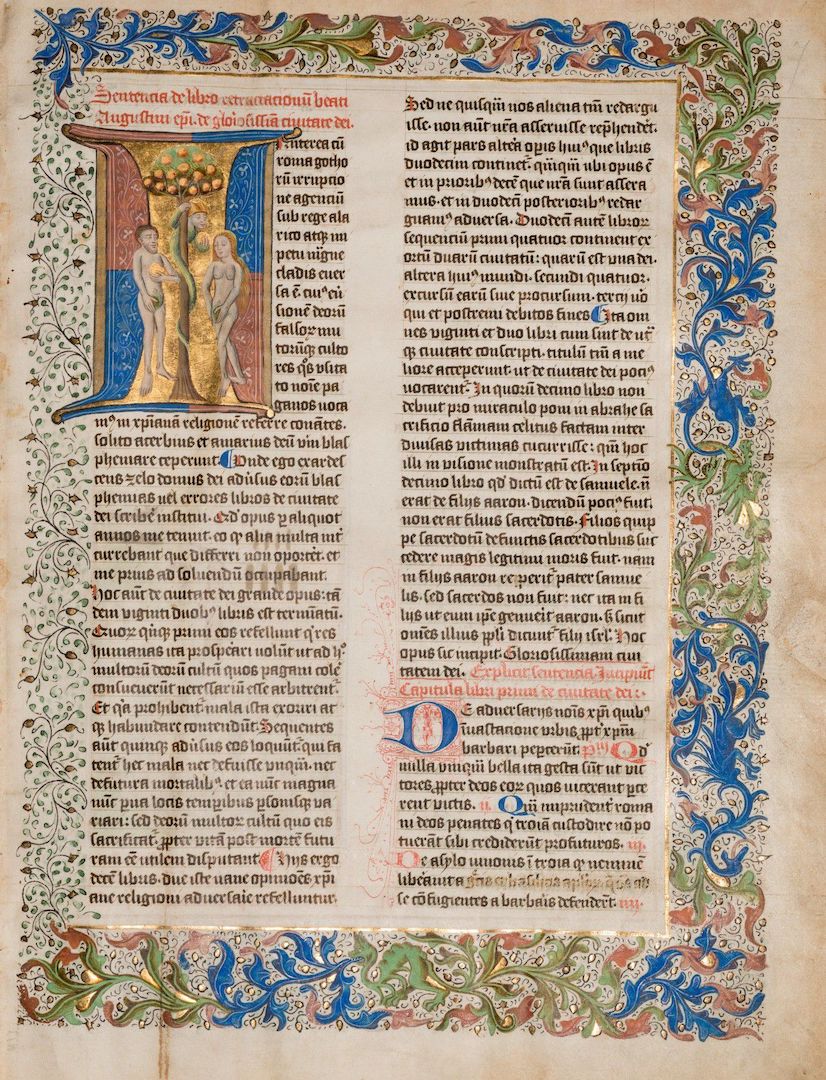 Sentencia de libro retractationũ beati
Augustini ep̃i. de glo͛iosissiã ciuitate dei.
Interea cũ
roma gotho
rũ irruptio
ne agenciũ
sub rege ala
rico atꝗ im
petu m̃gne
cladis euer
sa ẽ cui⁹ eũ
sionẽ deorũ
falsoꝝ mu
torũꝗ culto
res q̃s vsita
to noĩe pa
ganos uoca
m⁹ in xp̃ianã religionẽ referre conãtes.
solito acerbius et amarius deũ vẽrũ blas
phemare ceperunt. Unde ego exardes
cens zelo domus dei adũsus eorũ blas
phemias uel errores libros de ciuitate
dei scribẽ institui. Qd̃ opus ꝑ aliquot
annos me tenuit. eo ꝙ alia multa int̃
currebant que differri non oportẽt. et
me prius ad soluendũ occupabant.
Hoc aũt de ciuitate dei grande opus: tã
dem viginti duob⁹ libris est terminatũ.
Quoꝝ qͥnꝗ primi eos refellunt qͥ res
humanas ita prosꝑari uolũt ut ad h͛
multorũ deorũ cultũ quos pagani colẽ
consueuerũt necessariũ esse arbitrent̃.
Et qͥa prohibent̃ mala ista exoriri at
ꝗ habundare contendunt. Sequentes
aũt quinꝗ adũsus eos loquũt̃ qui fa
tent̃ hec mala nec defuisse vnꝗ̃m. nec
defutura mortalib⁹. et ea nũc magna
nunc ꝑua locis temꝑibus ꝑsonisꝗ va
riari: sed deorũ multoꝝ cultũ quo eis
sacrificat̃. ꝓpter vitã post mortẽ futu
ram eẽ utilem disputant. Hijs ergo
decẽ libris. due iste uane opinioẽs xp̃i
ane religioni aduersarie refelluntur.
Sed ne quisꝗ̃ nos aliena tñ redargu
isse. non aũt nr̃a asseruisse rep̃hendẽt.
id agit pars alterã oꝑis hui⁹ que libris
duodecim continet̃. quiꝗ̃ ubi opus ẽ
et in priorib⁹ decẽ que nr̃a sunt assera
mus. et in duodecĩ posteriorib⁹ redar
guam⁹ aduersa. Duodecĩ autẽ libroꝝ
sequenciũ primi quatuor continent ex
ortũ duarũ ciuitatũ: quarũ est vna dei.
altera hui⁹ mundi. secundi quatuor.
excursũ earũ siue procursum. tercij ũo
qui et postremi debitos fines. Ita om
nes viginti et duo libri cum sint de ut̃
ꝗ ciuitate conscripti. titulũ tñ a me
liore acceperunt. ut de ciuitate dei poci⁹
uocarent̃. In quorũ decimo libro non
debuit pro miraculo poni in abrahe sa
crificio flãmam celitus factam inter
diuisas victimas cucurrisse: qm̃ hoc
illi in visione monstratũ est. In septĩo
decimo libro qd̃ dictũ est de samuele. ñ
erat de filijs aaron. dicendũ poci⁹ fuit.
non erat filius sacerdotis. Filios quip
pe sacerdotũ defunctis sacerdotibus suc
cedere magis legitimi moris fuit. nam
in filijs aaron reꝑerit̃ pater samue
lis. sed sacerdos non fuit: nec ita in fi
lijs ut eum ip̃e genuerit aaron. s̃ sicut
om̃es illius pp̃li dicunt̃ filij isrl̃. Hoc
opus sic incipit. Gloriosissimam ciui
tatem dei. Explicit sentencia. Incipiũt
Capitula libri primi de ciuitate dei:.
De adversarijs noĩs xp̃i quib⁹
ĩ uastacione vrbis. ꝓpt̃ xp̃m
barbari peꝑcerũt. pͥ Qd̃
nulla vnꝗ̃m bella ita gesta sũt ut vic
tores. ꝓpter deos eoꝝ quos vicerant pꝑ
rent victis. ii. Qm̃ imprudent̃ roma
ni deos penates qͥ troiã custodire nõ po
tuerãt sibi crediderũt profuturos. iii.
De asylo iunonis ĩ troia ꝙ neminẽ
libẽauit a
se cõfugientes a barbaris defenderĩt. iiii.